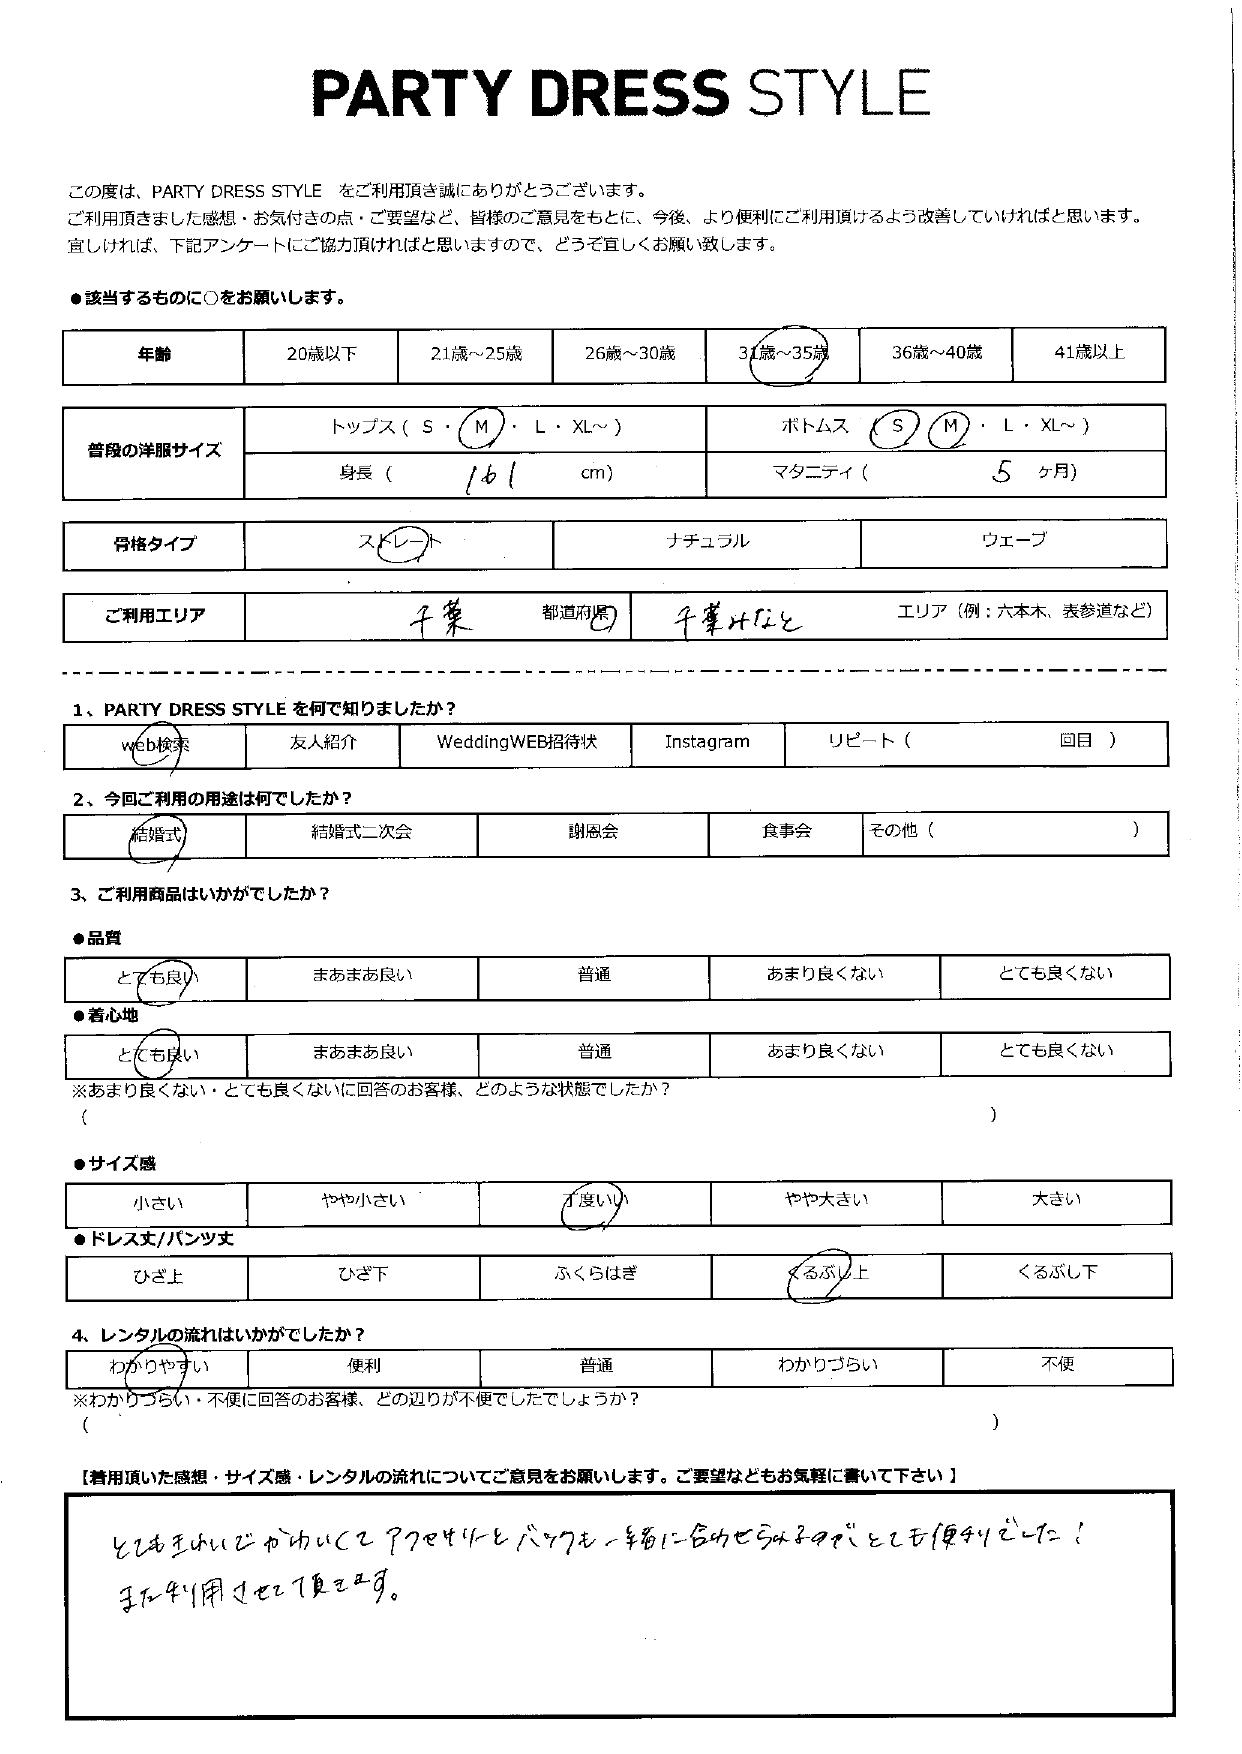 PARTY DRESS STYLE
この度は、PARTY DRESS STYLE をご利用頂き誠にありがとうございます。
ご利用頂きました感想・お気付きの点・ご要望など、皆様のご意見をもとに、今後、より便利にご利用頂けるよう改善していければと思います。
宜しければ、下記アンケートにご協力頂ければと思いますので、どうぞ宜しくお願い致します。
●該当するものに○をお願いします。
年齢 20歳以下 21歳～25歳 26歳～30歳 31歳～35歳 36歳～40歳 41歳以上
普段の洋服サイズ トップス ( S ・ M ・ L ・ XL～ ) ボトムス ( S ・ M ・ L ・ XL～ )
身長 ( 161 cm) マタニティ ( 5 ヶ月)
骨格タイプ ストレート ナチュラル ウェーブ
ご利用エリア 千葉 都道府県 千葉みなと エリア（例：六本木、表参道など）
1、PARTY DRESS STYLE を何で知りましたか？
web検索 友人紹介 WeddingWEB招待状 Instagram リピート ( 回目 )
2、今回ご利用の用途は何でしたか？
結婚式 結婚式二次会 謝恩会 食事会 その他 ( )
3、ご利用商品はいかがでしたか？
●品質
とても良い まあまあ良い 普通 あまり良くない とても良くない
●着心地
とても良い まあまあ良い 普通 あまり良くない とても良くない
※あまり良くない・とても良くないに回答のお客様、どのような状態でしたか？
( )
●サイズ感
小さい やや小さい 丁度いい やや大きい 大きい
●ドレス丈/パンツ丈
ひざ上 ひざ下 ふくらはぎ くるぶし上 くるぶし下
4、レンタルの流れはいかがでしたか？
わかりやすい 便利 普通 わかりづらい 不便
※わかりづらい・不便に回答のお客様、どの辺りが不便でしたでしょうか？
( )
【着用頂いた感想・サイズ感・レンタルの流れについてご意見をお願いします。ご要望などもお気軽に書いて下さい】
とてもきれいでかわいくて アクセサリーとバックも一緒に合わせられるのがとても便利でした！
また利用させて頂きます。